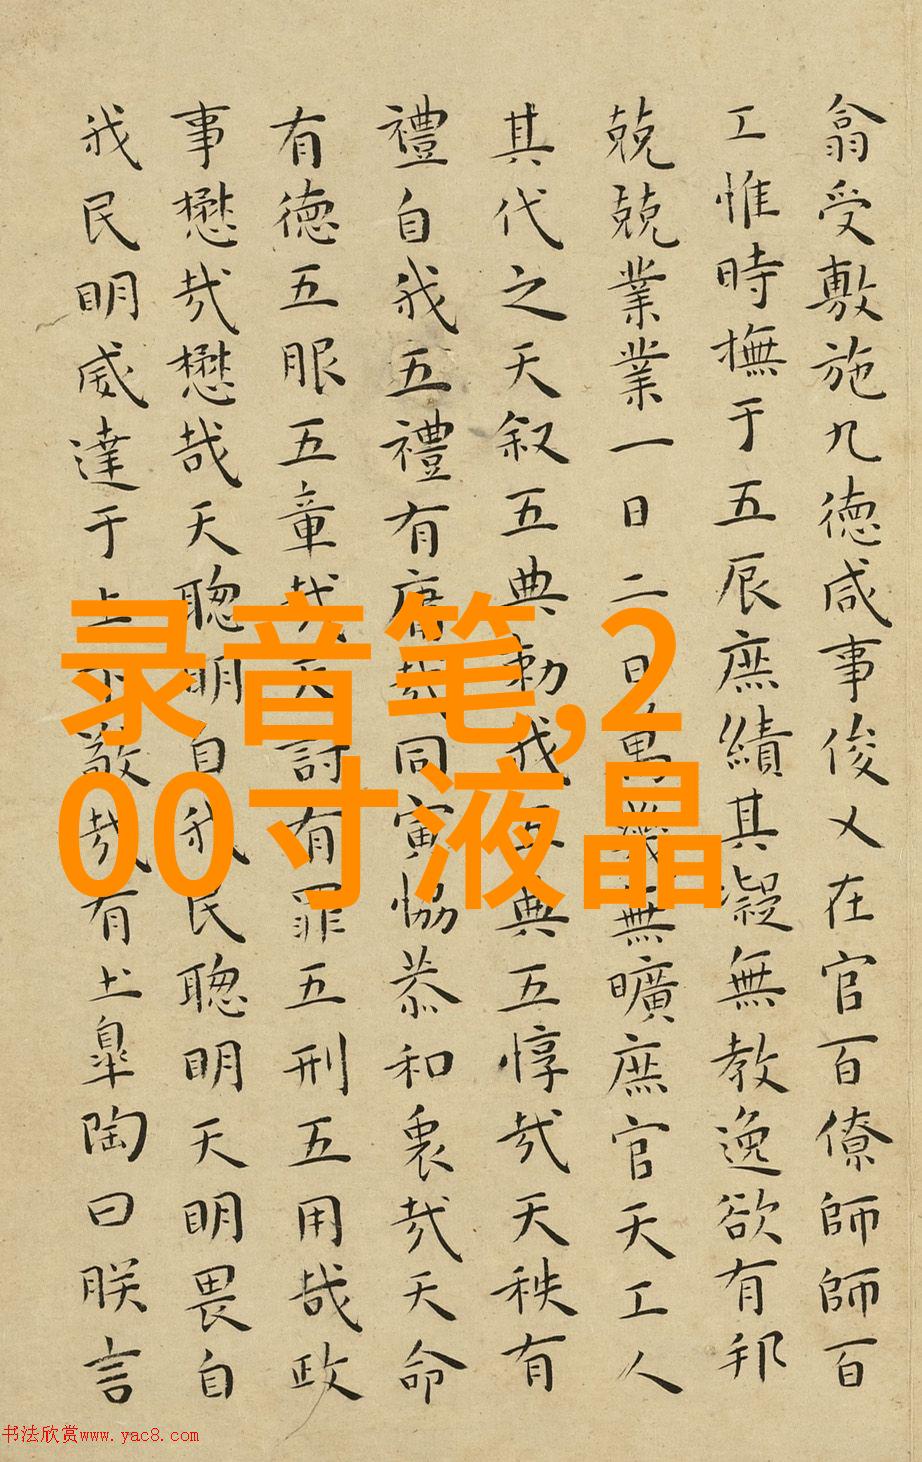 翕受敷施九德咸事俊乂在官百僚師師百
工惟時撫于五辰庶績其凝無教逸欲有邦
兢兢業業一日二日萬幾無曠庶官天工人
其代之天叙五典勑我五典五惇哉天秩有
禮自我五禮有庸哉同寅恊恭和衷哉天命
有德五服五章哉天討有罪五刑五用哉政
事懋哉懋哉天聰明自我民聰明天明畏自
我民明威達于上下敬哉有土皐陶曰朕言
录音笔,2
00寸液晶
书法欣赏www.yac8.com